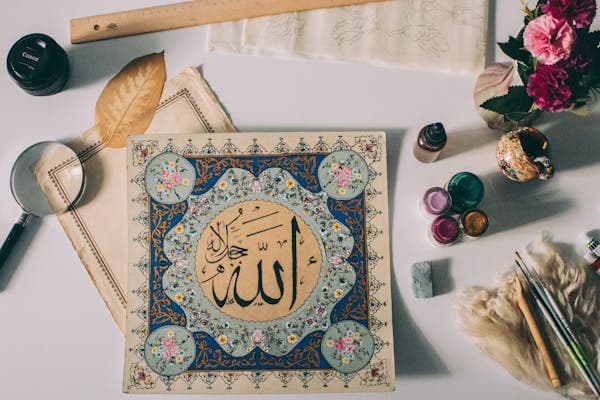 Canon
الله جل جلاله